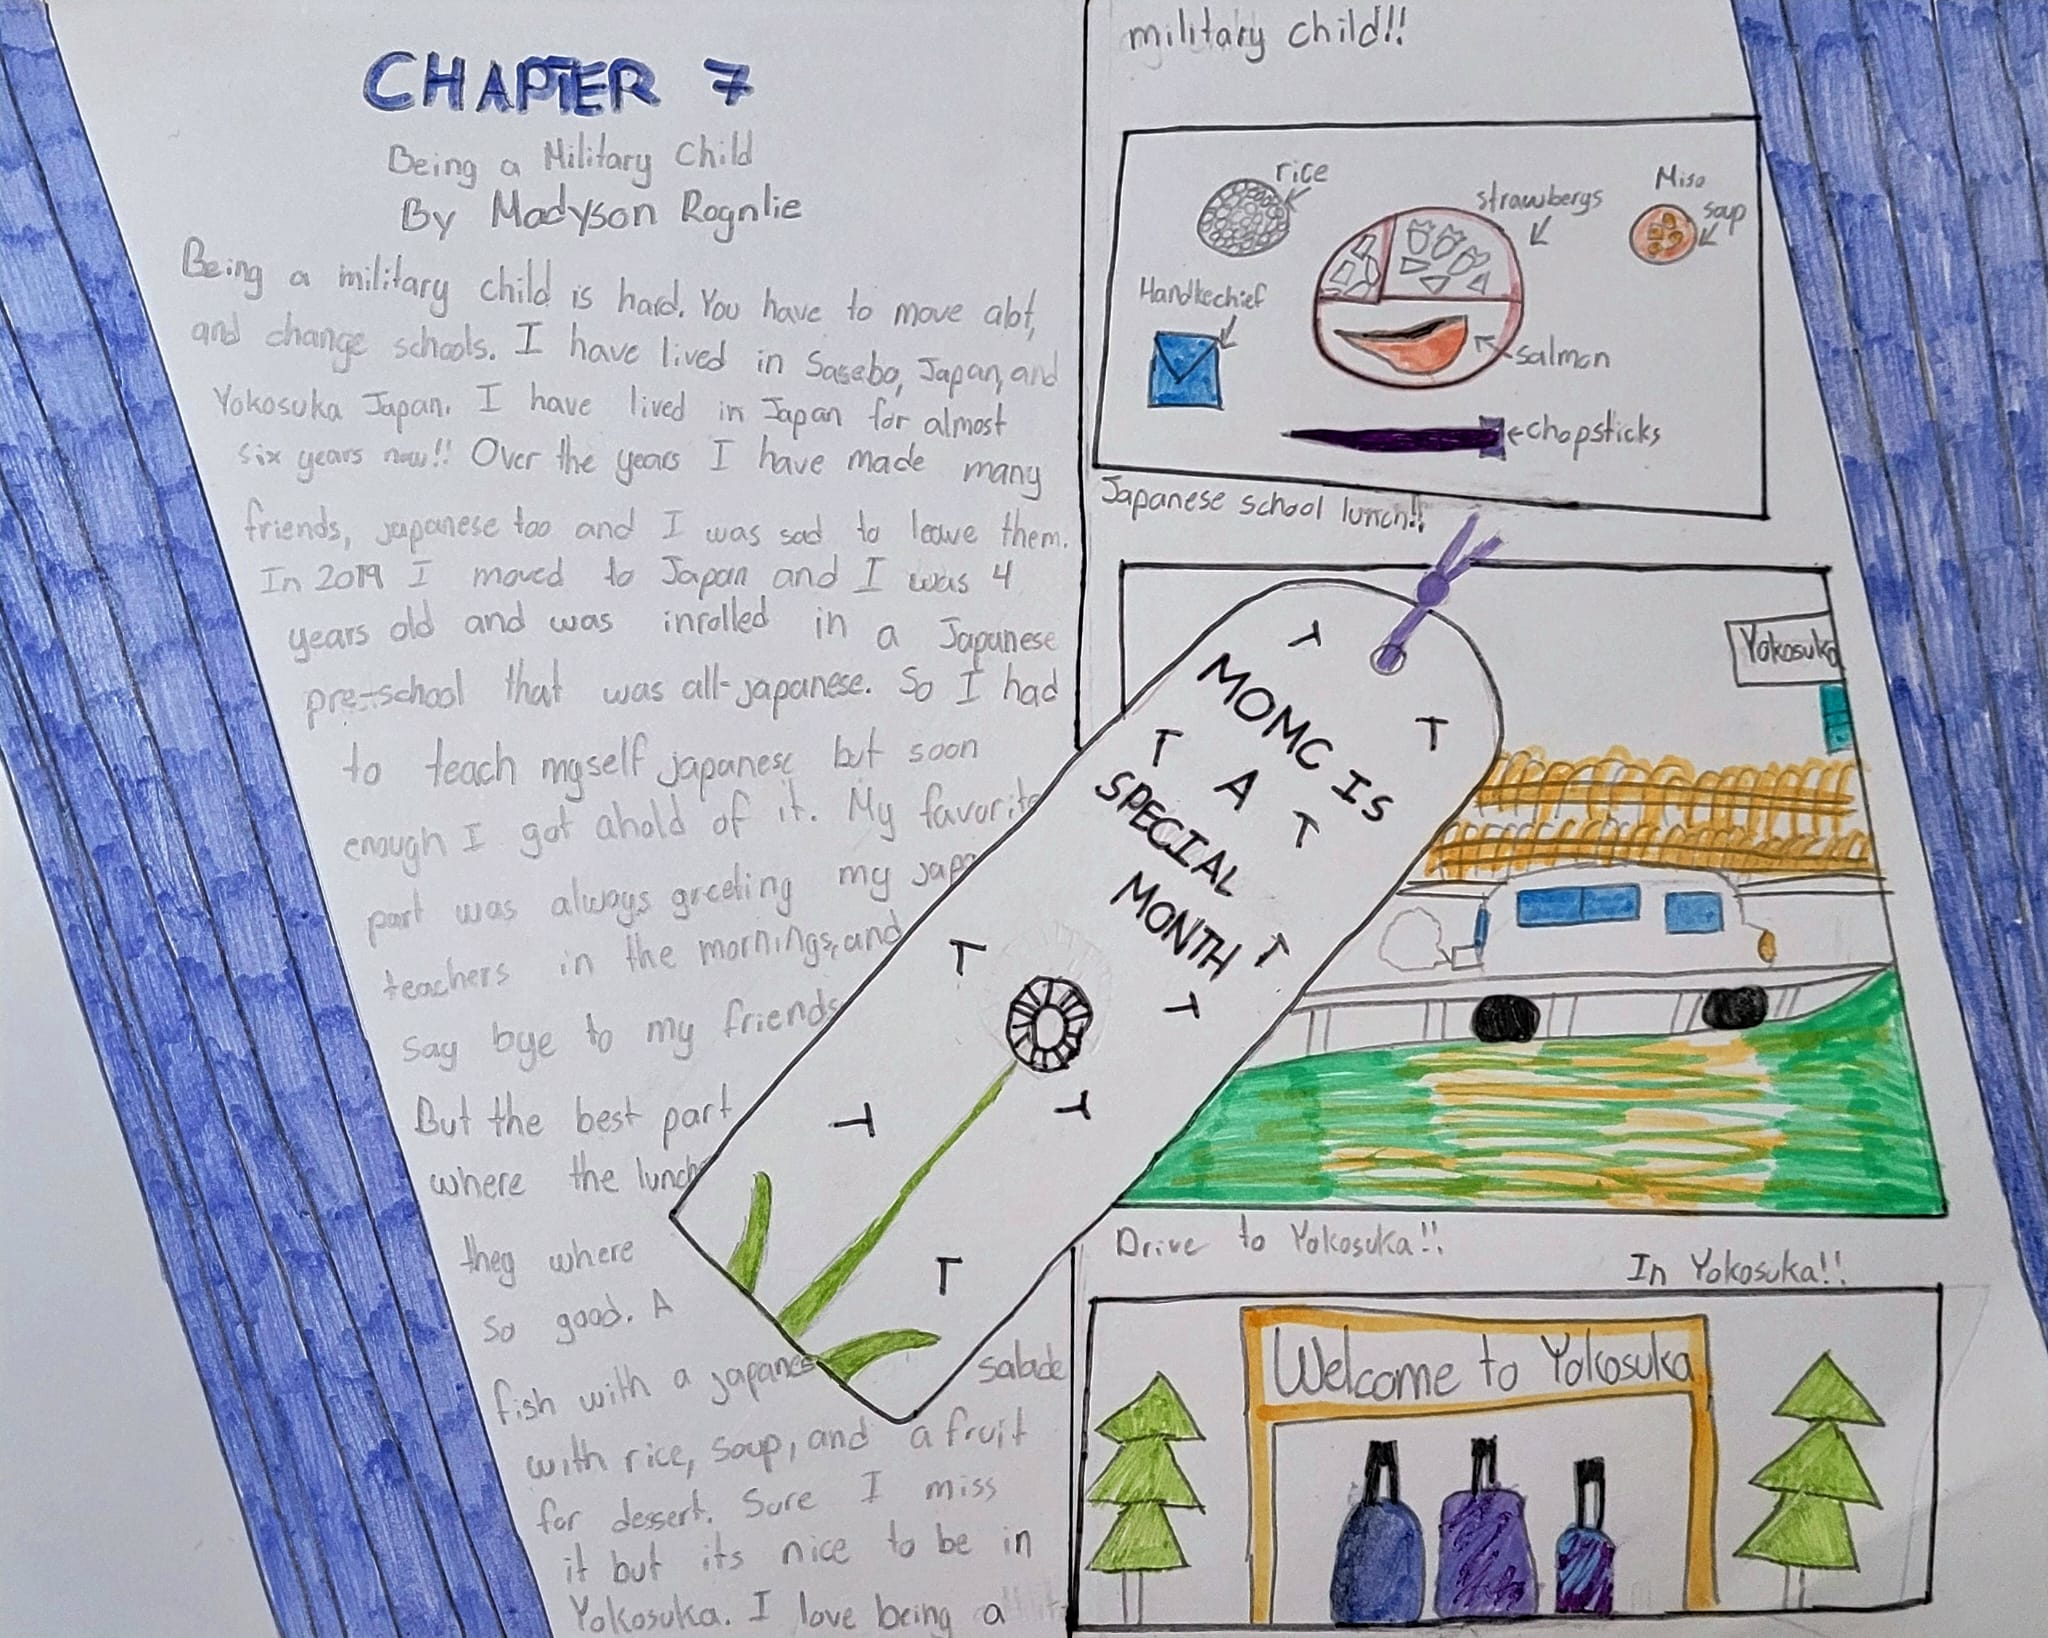 CHAPTER 7
Being a Military Child
By Madyson Rognlie
Being a military child is hard. You have to move alot,
and change schools. I have lived in Sasebo, Japan, and
Yokosuka Japan. I have lived in Japan for almost
six years now!! Over the years I have made many
friends, japanese too and I was sad to leave them.
In 2019 I moved to Japan and I was 4
years old and was inrolled in a Japanese
pre-school that was all-japanese. So I had
to teach myself japanese but soon
enough I got ahold of it. My favorite
part was always greeting my jap
teachers in the mornings, and
say bye to my friends
But the best part
where the lunch
they where
so good. A
fish with a japanese salade
with rice, soup, and a fruit
for dessert. Sure I miss
it but its nice to be in
Yokosuka. I love being a
military child!!
rice
strawbergs
Miso
soup
Handkechief
salmon
chopsticks
Japanese school lunch!!
MOMC IS
A
SPECIAL
MONTH
Yokosuka
Drive to Yokosuka!!
In Yokosuka!!
Welcome to Yokosuka